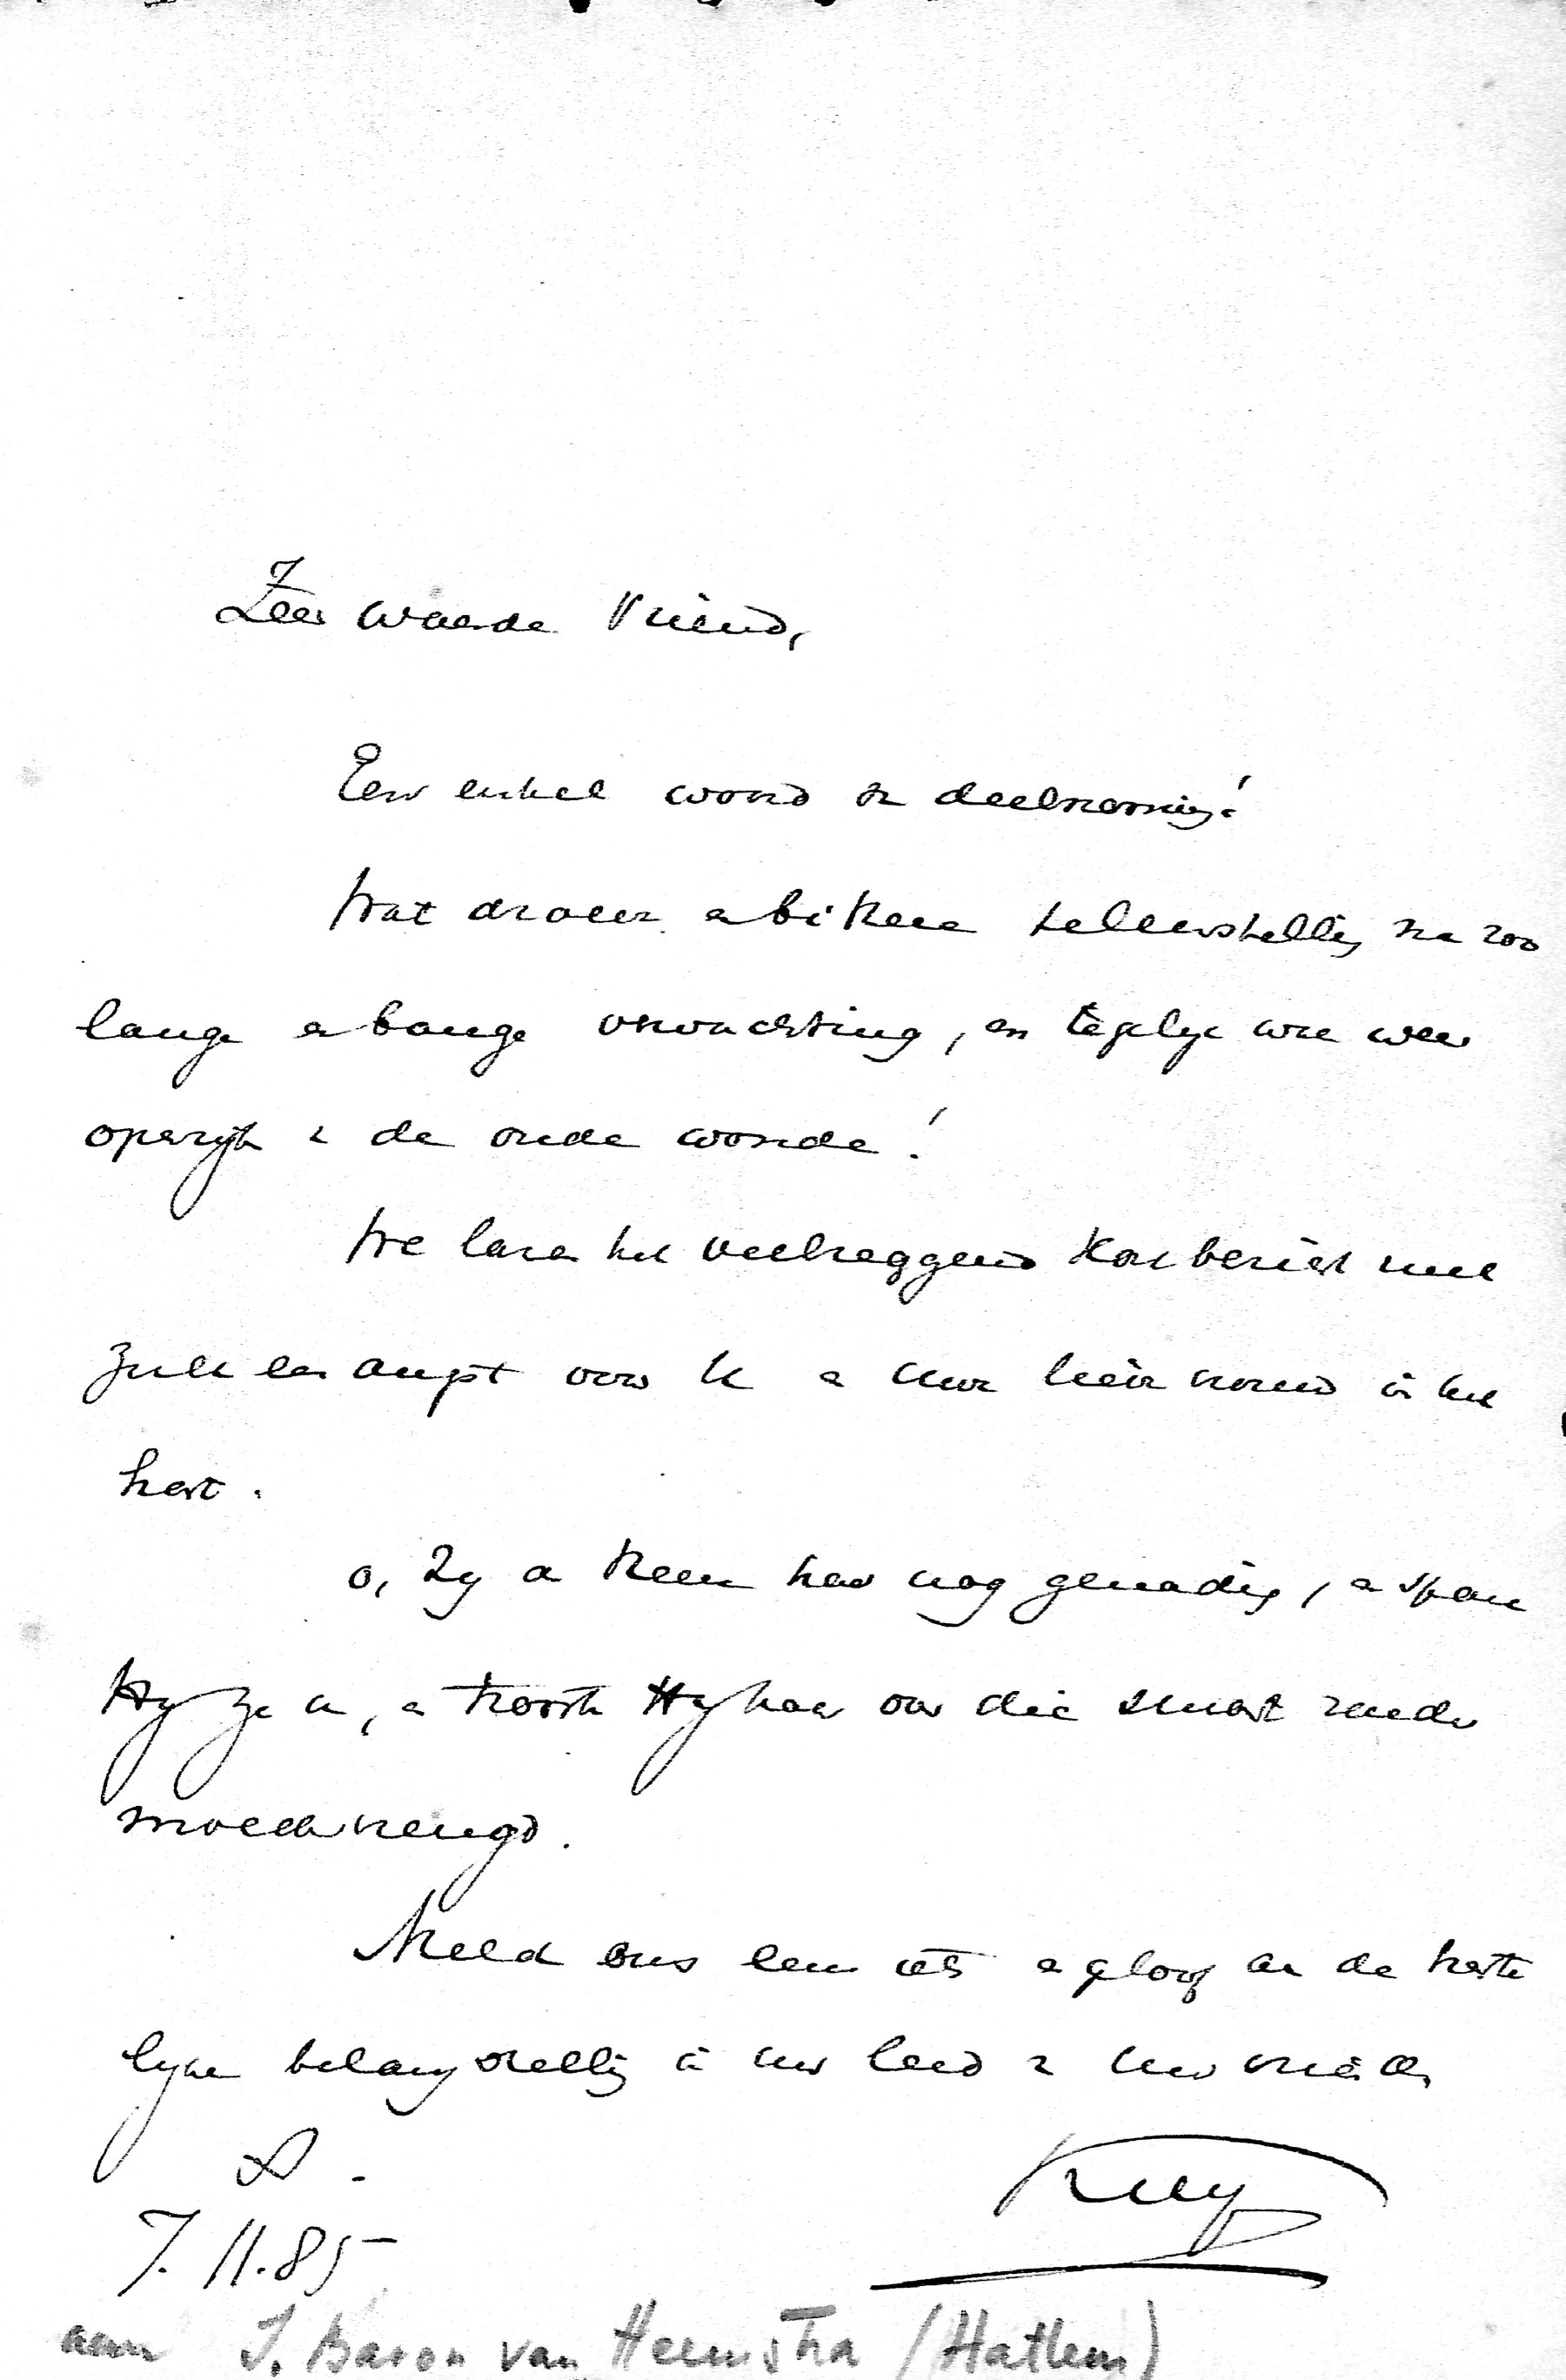 Zeer waarde Vriend,
Een enkel woord v deelneming!
Wat droeve en bittere teleurstelling na zoo
lange en bange verwachting, en tegelijk wee weer
openrijt v de oude wonde!
We lazen het veelzeggend kort bericht met
zulk een angst voor U en uwe lieve vrouw in het
hart.
o, Zij de Heere haar nog genadig, en spare
Hij ze u, en trooste Hij haar over die smart zonder
moedervreugd.
Meld ons eens iets en geloof aan de harte
lijke belangstelling in uw leed v uw vriend
A.
7.11.85
Kuy
aan J. Baron van Heemstra (Hattem)